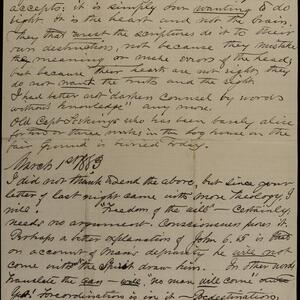 accepts: it is simply our wanting to
do right. It is the heart and not the brain.
They that wrest the scriptures do it to their
own destruction, not because they mistake
the meaning or make errors of the head,
but because their hearts are not right, they
do not want the truth and the right.
I had better not "darken counsel by words
without knowledge" any more.
Old Capt. who has been barely alive
for two or three weeks in the house on the
fair ground is buried today.
March 1st 1883
I did not think to send the above, but since your
letter of last night came with more theology I
will. "Freedom of the will" – Certainly,
needs no argument. Consciousness proves it.
Perhaps a better explanation of John 6.65 is that
on account of Man's depravity he will not
come unless the Spirit draw him. In other words
Translate the can – will. no man will come
foreordination is in it – Predestination,